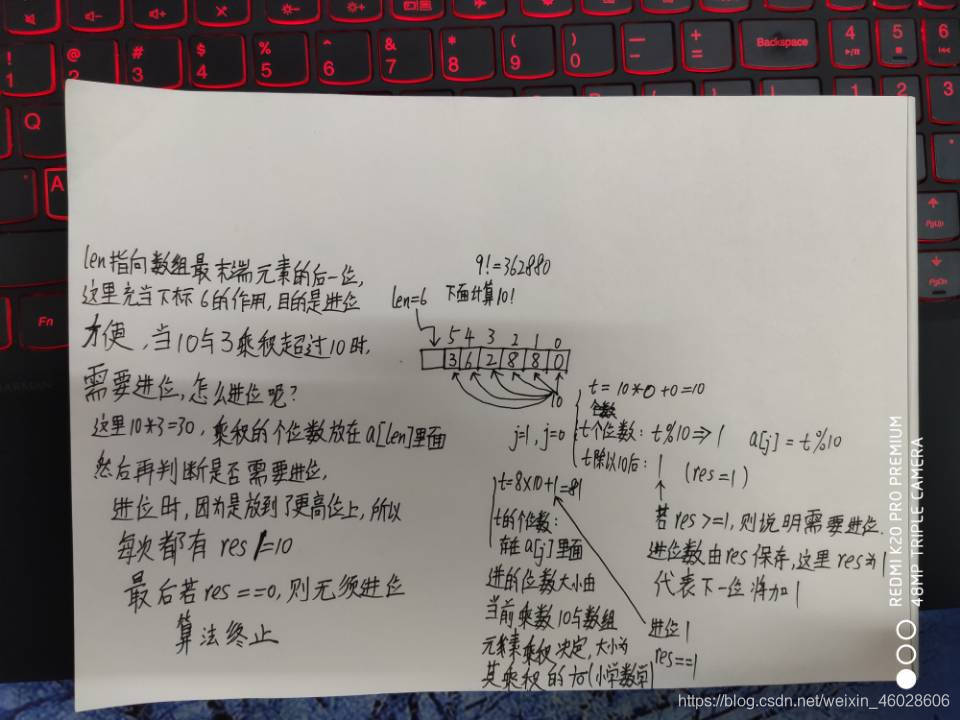 len指向数组最末端元素的后一位,
这里充当下标6的作用,目的是进位
方便,当10与3乘积超过10时,
需要进位,怎么进位呢?
这里10*3=30,乘积的个位数放在a[len]里面
然后再判断是否需要进位,
进位时,因为是放到了更高位上,所以
每次都有 res/=10
最后若res==0,则无须进位
算法终止
9!=362880
len=6 下面计算10!
5 4 3 2 1 0
3 6 2 8 8 0
10
j=1, j=0
t=10*0+0=10
t个位数: t%10⇒1 a[j]=t%10
t除以10后: 1 (res=1)
若res>=1,则说明需要进位.
进位数由res保存,这里res为1
代表下一位将加1
t=8×10+1=81
t的个位数:
存在a[j]里面
进的位数大小由
当前乘数10与数组
元素乘积决定,大小为
其乘积的 (小学数学)
进位1
res==1
REDMI K20 PRO PREMIUM
48MP TRIPLE CAMERA
https://blog.csdn.net/weixin_46028606
! 1
@ 2
# 3
$ 4
% 5
^ 6
& 7
* 8
( 9
) 0
Backspace
4
5
6
Q
1
2
3
A
Fn
PgUp
PgDn